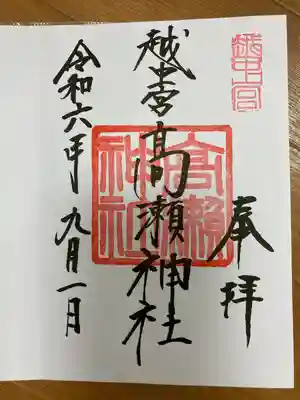 越中宮
奉拝
越中宮高瀬神社
高瀬神社
令和六年九月一日